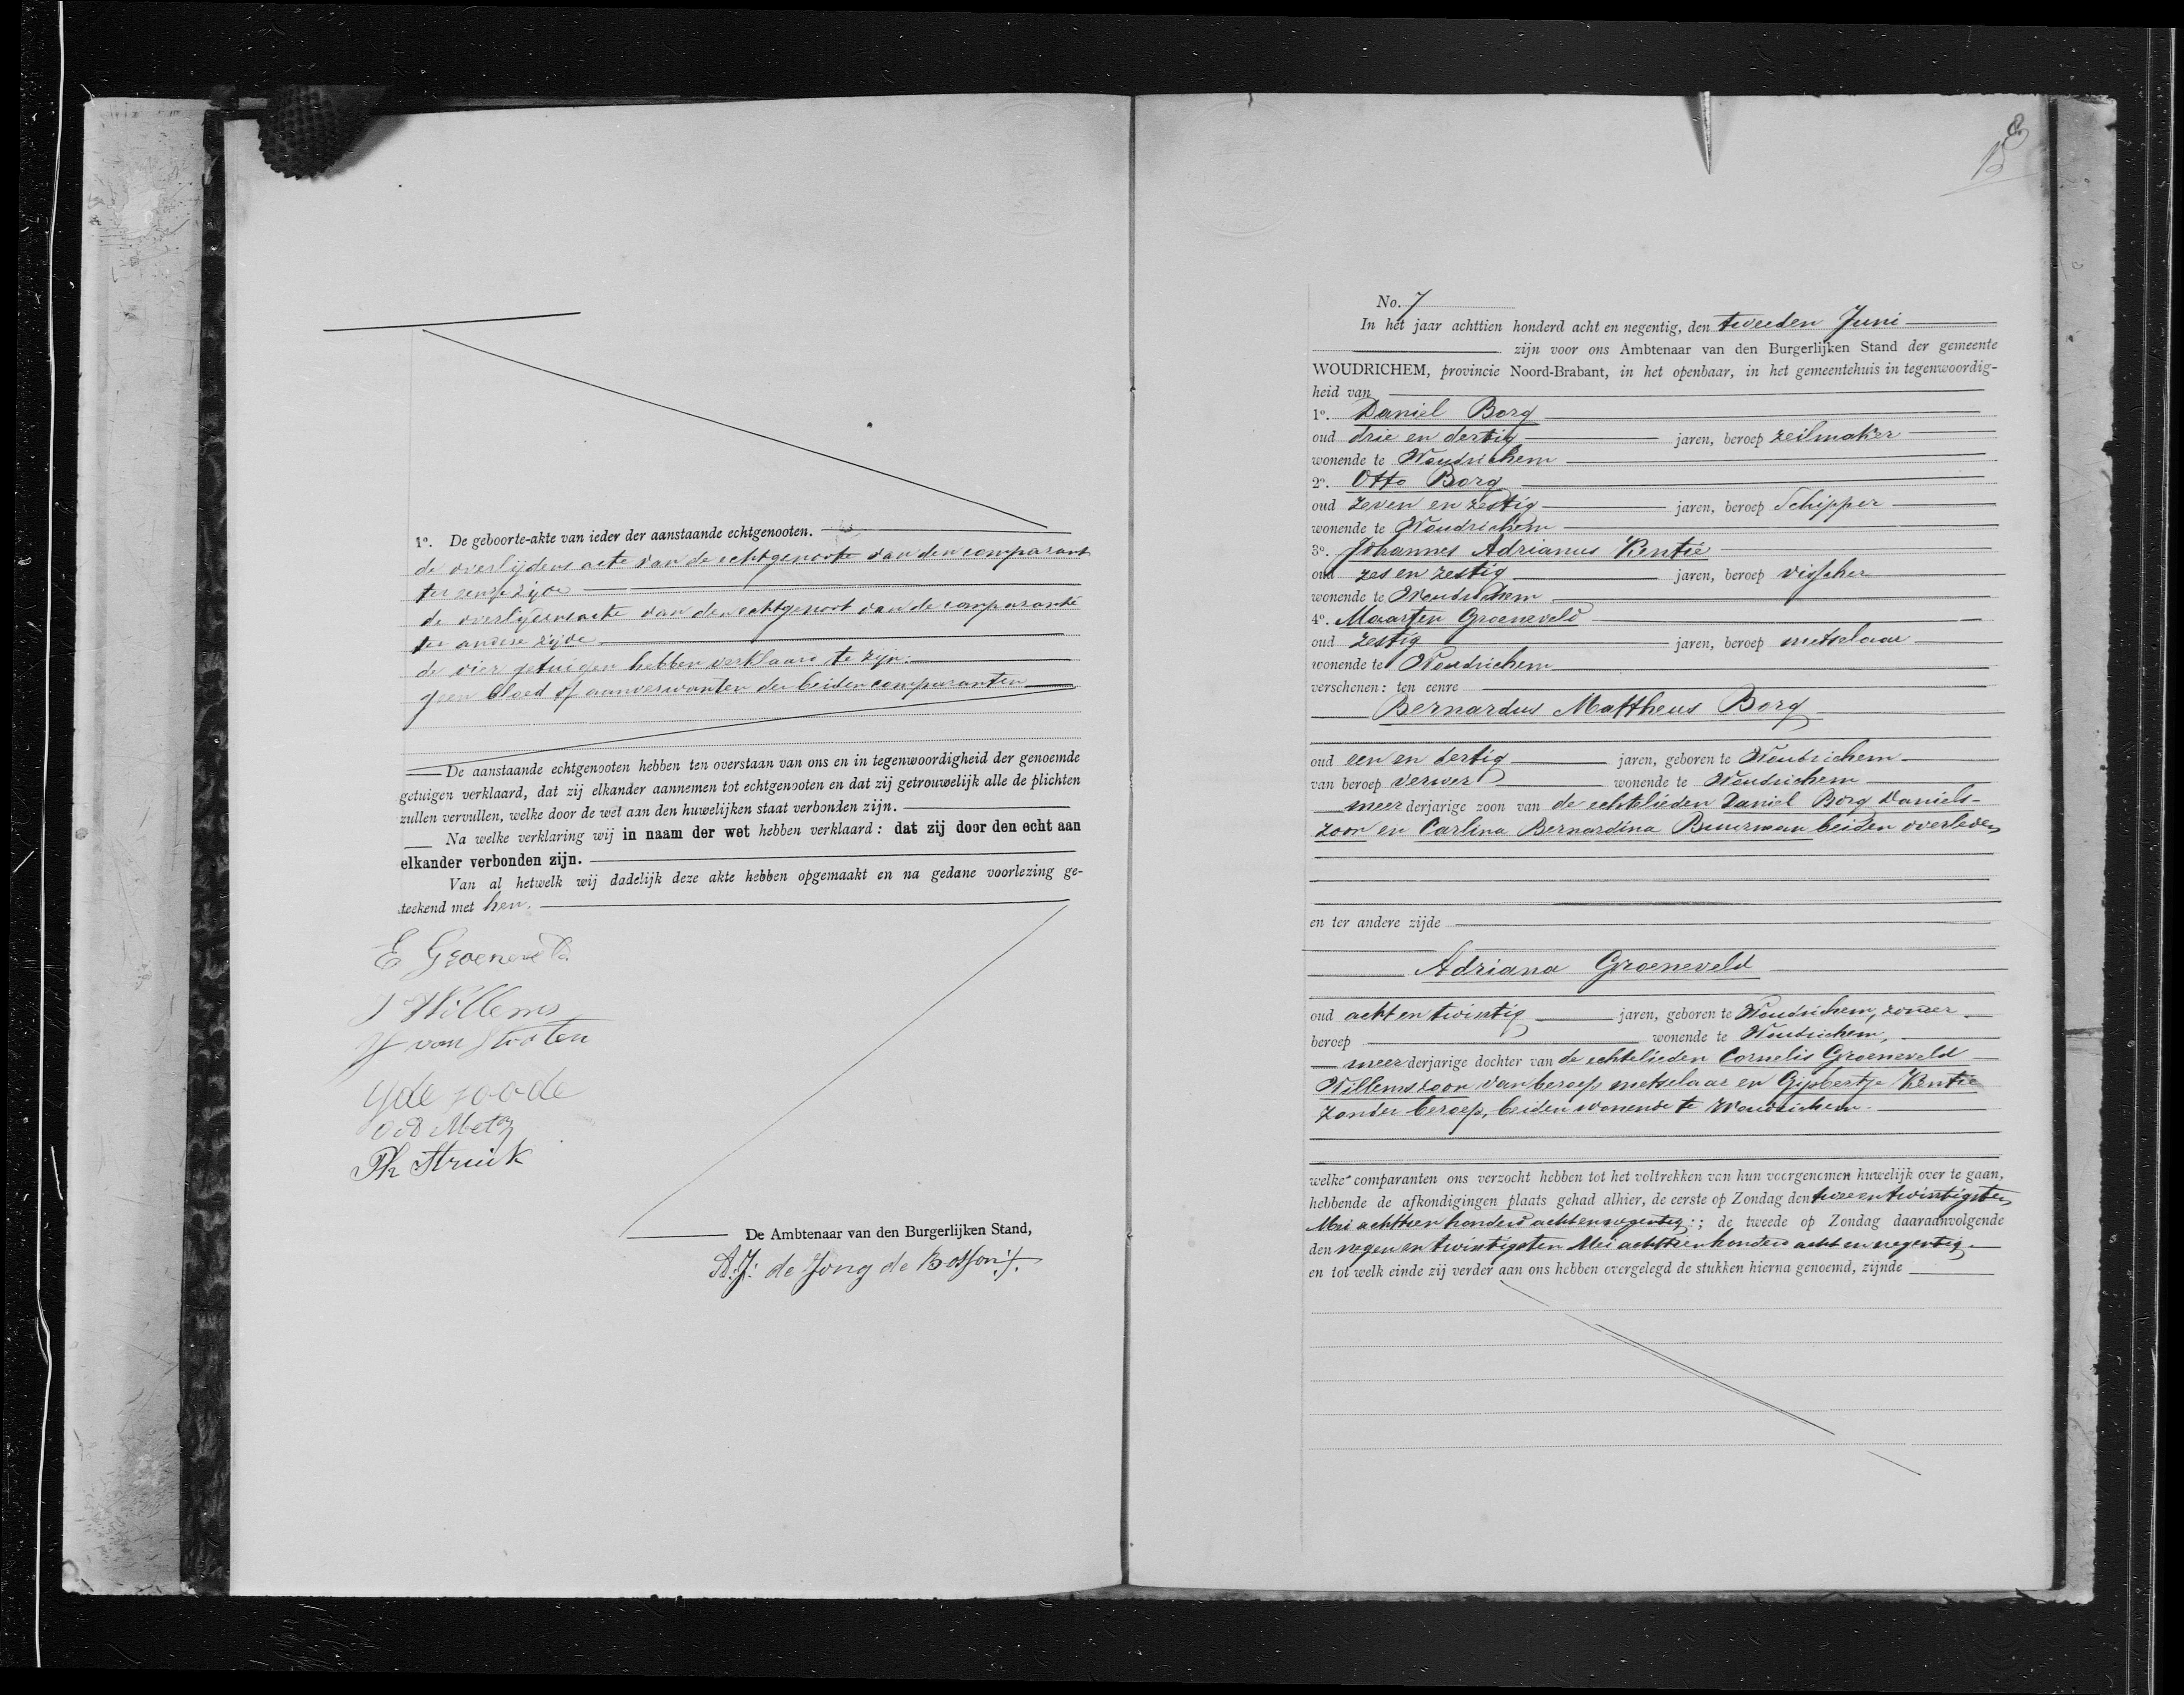 1°. De geboorte-akte van ieder der aanstaande echtgenooten.
de overlijdens acte van de echtgenoote van den comparant
ter eenre zijde
de overlijdensacte van den echtgenoot van de comparante
ter andere zijde
de vier getuigen hebben verklaard te zijn:
geen bloed of aanverwanten der beiden comparanten
De aanstaande echtgenooten hebben ten overstaan van ons en in tegenwoordigheid der genoemde
getuigen verklaard, dat zij elkander aannemen tot echtgenooten en dat zij getrouwelijk alle de plichten
zullen vervullen, welke door de wet aan den huwelijken staat verbonden zijn.
Na welke verklaring wij in naam der wet hebben verklaard: dat zij door den echt aan
elkander verbonden zijn.
Van al hetwelk wij dadelijk deze akte hebben opgemaakt en na gedane voorlezing ge-
teekend met hen.
E Groeneveld
J Willems
van Slooten
Y de joode
Metz
Ph Struik
De Ambtenaar van den Burgerlijken Stand,
A.J. de Jong de Bosson
8
No. 7
In het jaar achttien honderd acht en negentig, den tweeden Juni
zijn voor ons Ambtenaar van den Burgerlijken Stand der gemeente
WOUDRICHEM, provincie Noord-Brabant, in het openbaar, in het gemeentehuis in tegenwoordig-
heid van
1°. Daniel Borg
oud drie en dertig jaren, beroep zeilmaker
wonende te Woudrichem
2°. Otto Borg
oud zeven en zestig jaren, beroep Schipper
wonende te Woudrichem
3°. Johannes Adrianus Kentie
oud zes en zestig jaren, beroep visscher
wonende te Woudrichem
4°. Maarten Groeneveld
oud zestig jaren, beroep metselaar
wonende te Woudrichem
verschenen: ten eenre
Bernardus Mattheus Borg
oud een en dertig jaren, geboren te Woudrichem
van beroep verwer wonende te Woudrichem
meerderjarige zoon van de echtelieden Daniel Borg Daniels-
zoon en Carlina Bernardina Buurman beiden overleden
en ter andere zijde
Adriana Groeneveld
oud acht en twintig jaren, geboren te Woudrichem, zonder
beroep wonende te Woudrichem,
meerderjarige dochter van de echtelieden Cornelis Groeneveld
Willemszoon van beroep metselaar en Gijsbertje Kentie
zonder beroep, beiden wonende te Woudrichem.
welke comparanten ons verzocht hebben tot het voltrekken van hun voorgenomen huwelijk over te gaan,
hebbende de afkondigingen plaats gehad alhier, de eerste op Zondag den twee en twintigsten
Mei achttien honderd acht en negentig; de tweede op Zondag daaraanvolgende
den negen en twintigsten Mei achttien honderd acht en negentig
en tot welk einde zij verder aan ons hebben overgelegd de stukken hierna genoemd, zijnde